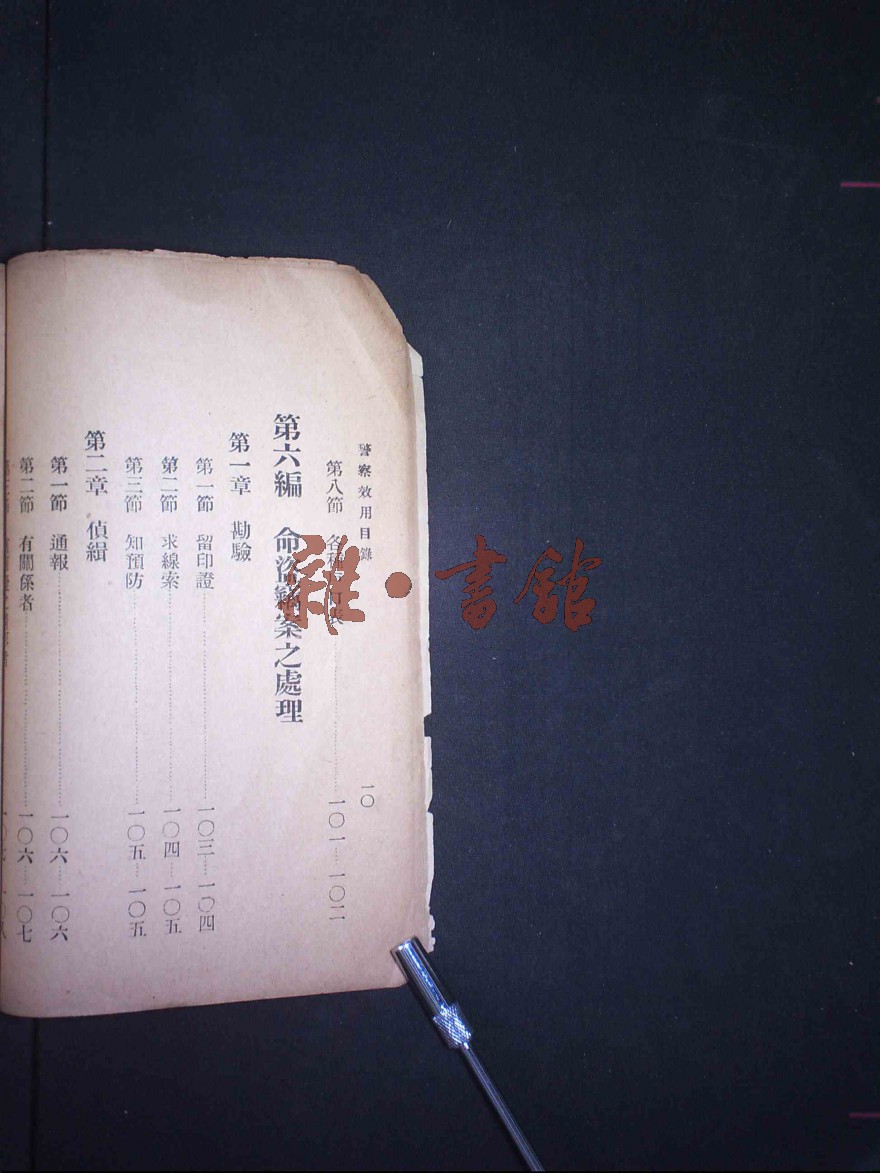 警察效用目錄
一〇
第八節 各種 表 一〇一 一〇二
第六編 命盜 案之處理
第一章 勘驗
第一節 留印證 一〇三 一〇四
第二節 求線索 一〇四 一〇五
第三節 知預防 一〇五 一〇五
第二章 偵緝
第一節 通報 一〇六 一〇六
第二節 有關係者 一〇六 一〇七
雅·書館